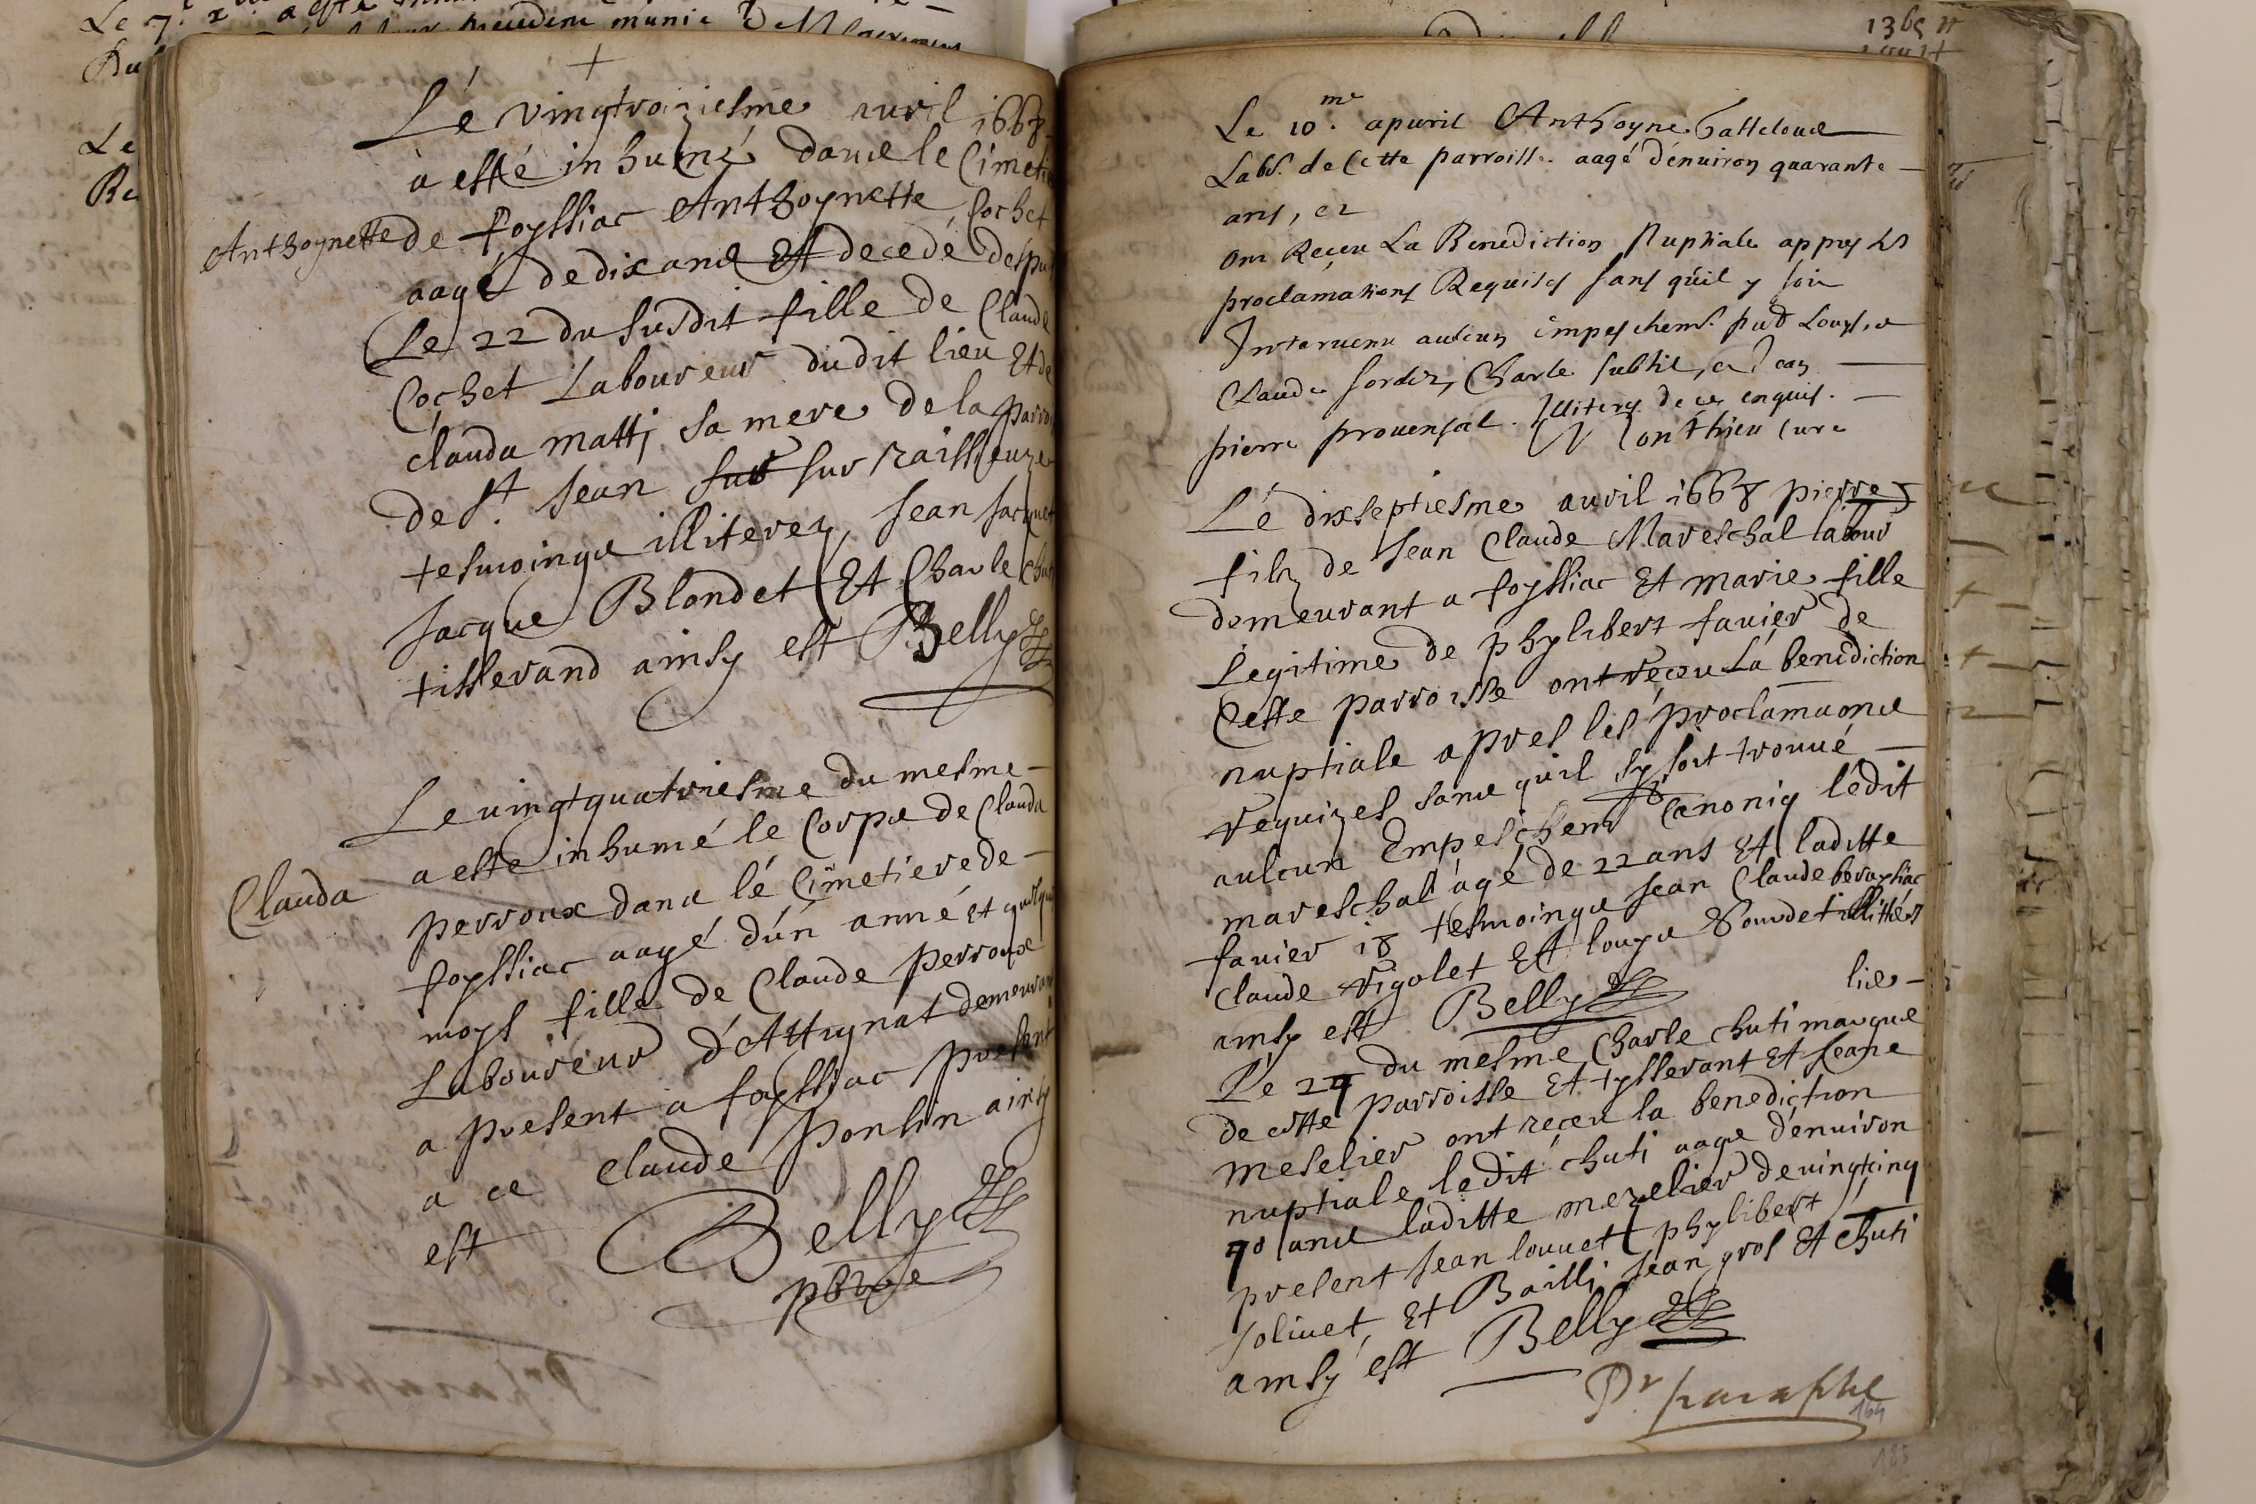 +
Le vingtroiziesme avril 1668
a esté inhumé dans le Cimetie
Anthoynette
de foyssiac Anthoynette Cochet
aagé de dix ans Et decedé despui
Le 22 du susdit fille de Claude
Cochet Laboureur dudit lieu Et de
clauda matti sa mere de la parroi
de St. Jean sur sur raissieuze
tesmoings illiterez, Jean Jacquet
Jacque Blondet Et Charle Chuti
tisserand ainsy est Belly
Le vingtquatriesme du mesme
a esté inhumé le Corps de Clauda
Clauda
perroux dans lé Cimetiere de
foyssiac aagé d'un anné et quelque
moys fille de Claude perroux
Laboureur d'Attignat demeurant
a present a foyssiac present
a ce Claude ponsin ainsy
est Belly
pbre
Le 10.me apvril Anthoyne
Labr. de Cette parroisse aagé d'environ quarante
ans, et
ont Reçeu La Benediction Nuptiale appres les
proclamations Requises sans qu'il y soit
Intervenu aulcun empeschemt.
Claude Charle subtil, et Jean
pierre provensal. Illiterez de ce enquis.
Monthieu Curé
Lé dixseptiesme avril 1668 pierre
filz de Jean Claude Mareschal labour
demeurant a foyssiac Et marie fille
Legitime de phylibert favier de
Cette parroisse ont reçeu La benediction
nuptiale apres les proclamaons
requizes sans quil sy soit trouvé
aulcun Empeschemt Canoniq lédit
mareschal agé de 22 ans Et laditte
favier 18 tesmoings Jean Claude
Claude rigolet Et louys illitteré
ainsy est Belly
lier
Le 24 du mesme Charle chuti marque
de cette parroisse Et tysserant Et Jeane
meselier ont reçeu la benediction
nuptiale ledit chuti aage d'environ
40 ans laditte mezelier de vingtcinq
present Jean louvet phylibert
solivet, Et Bailli Jean gros Et chuti
ainsy est Belly
Pr. paraphe
164
185